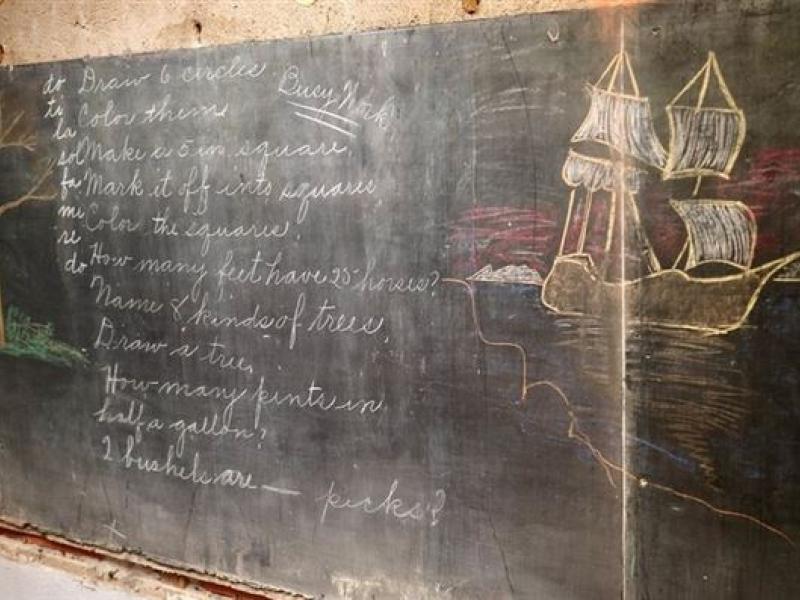 do Draw 6 circles Busy Work
ti Color them
la
sol Make a 5 in square.
fa Mark it off into squares.
mi Color the squares.
re
do How many feet have 25 horses?
Name 8 kinds of trees.
Draw a tree.
How many pints in
half a gallon?
2 bushels are — picks?